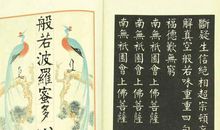 斷疑生信絶相超宗頓
解真空般若味重重四句
福德歎無窮
南無祇園會上佛菩薩
南無祇園會上佛菩薩
南無祇園會上佛菩薩
般若波羅蜜多